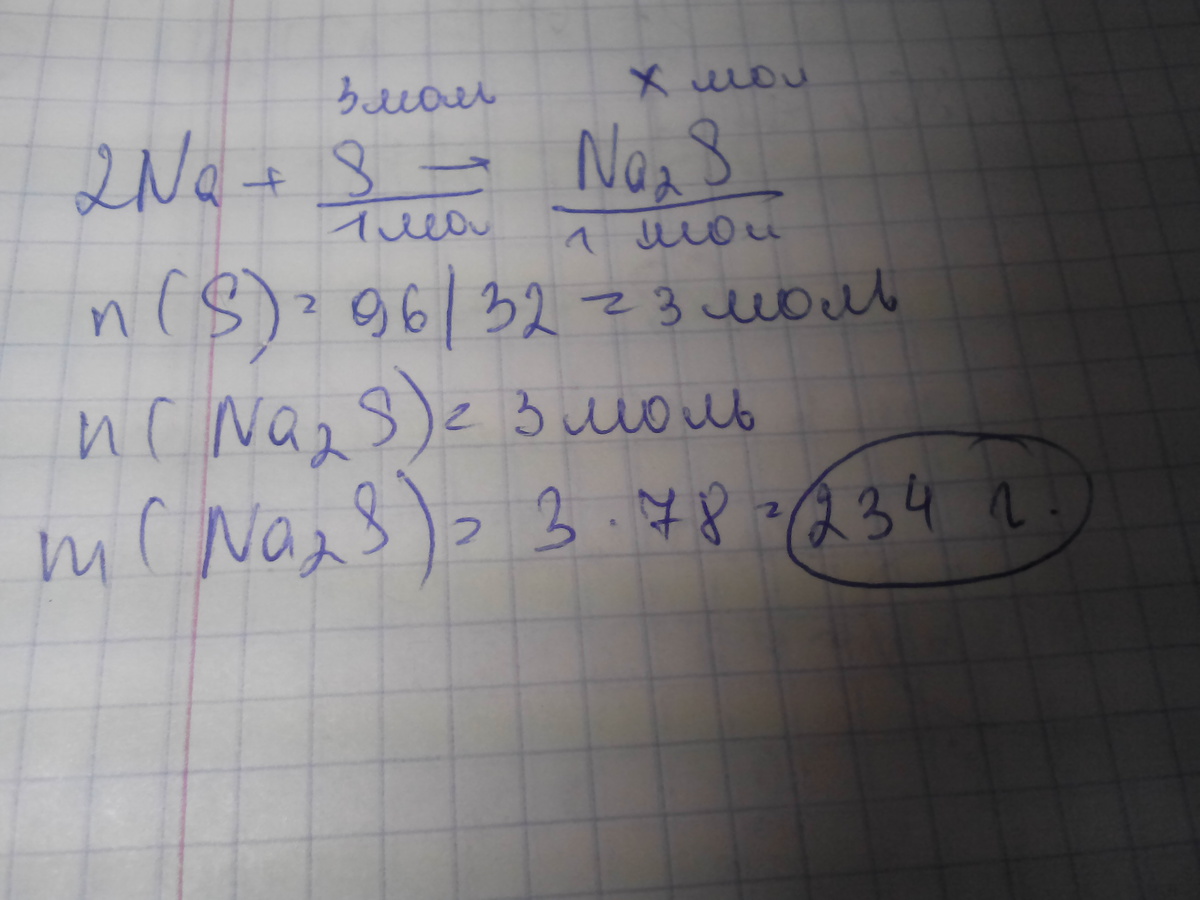 3 моль x мол
2Na + S → Na₂S
1 мол 1 мол
n(S) = 96/32 = 3 моль
n(Na₂S) = 3 моль
m(Na₂S) = 3 · 78 = 234 г.